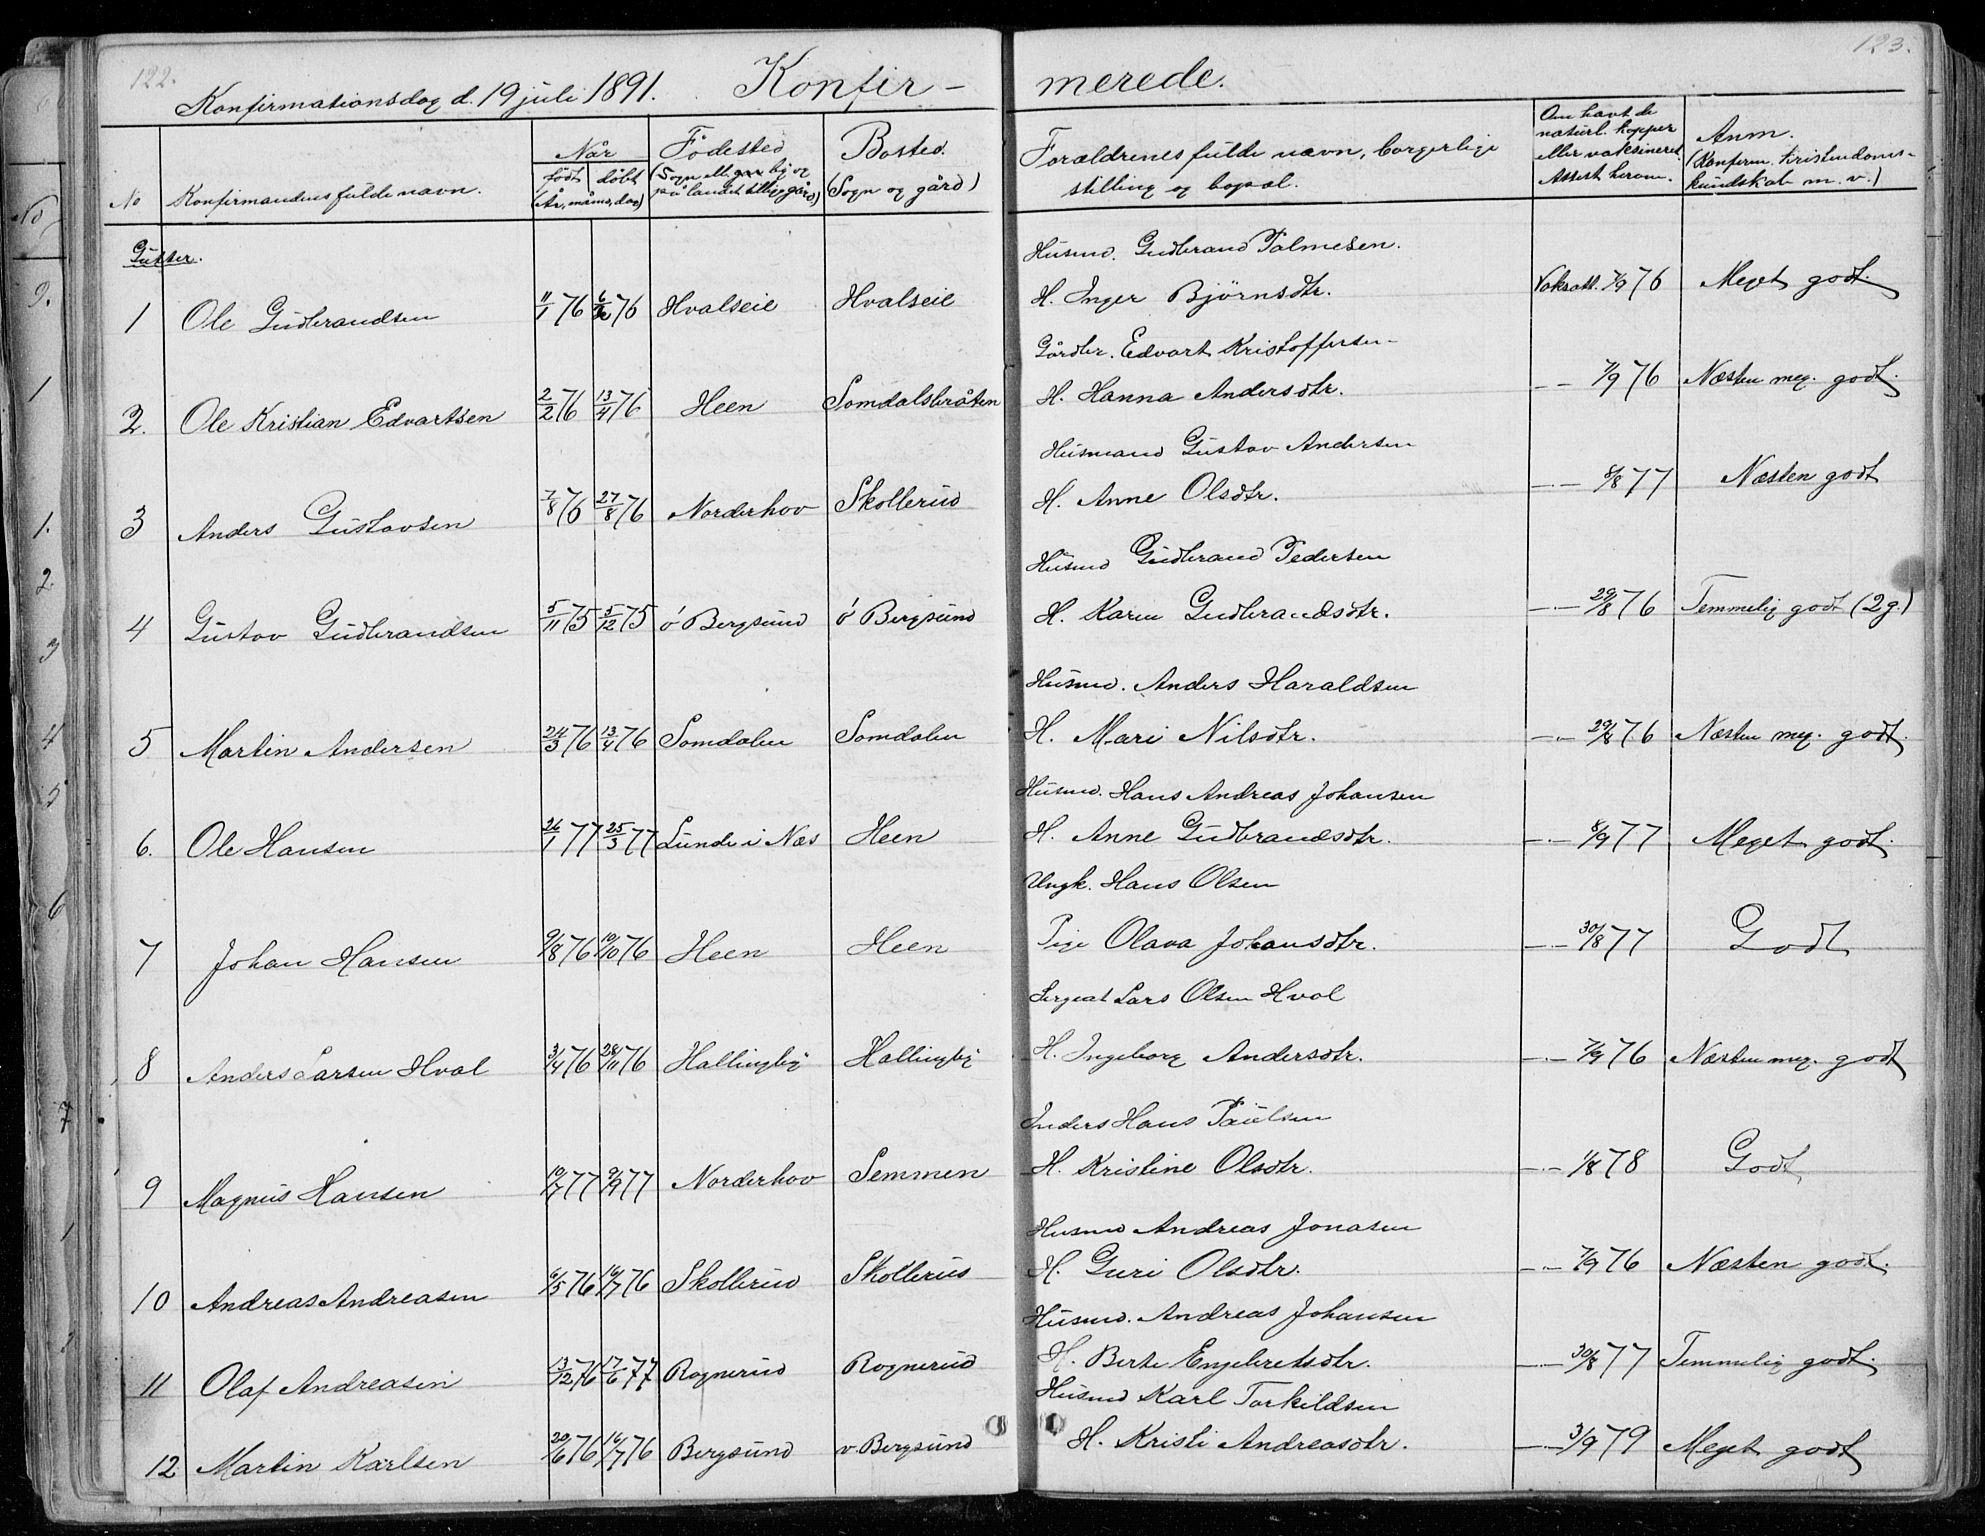 122.
123.
Konfirmationsdag d. 19 juli 1891. Konfir- merede.
No
Konfirmandens fulde navn.
Når
født døbt
(År, månd, dag)
Fødested
(Sogn ell. by og
på landet tillige gård)
Bosted.
(Sogn og gård)
Forældrenes fulde navn, borgerlige
stilling og bopæl.
Om havt de
naturl. kopper
eller vaksineret.
Attest herom.
Anm.
(Konferm. kristendoms-
kundskab m. v.)
Gutter.
Husmd. Gudbrand Palmesen.
1 Ole Gudbrandsen 11/1 76 76 Hvalseie Hvalseie H. Inger Bjørnsdtr. Vaksatt. 7/9 76 Meget godt.
Gårdbr. Edvart Kristoffersen
2. Ole Kristian Edvartsen 2/2 76 13/4 76 Heen Somdalsbråten H. Hanna Andersdtr. -- 7/9 76 Næsten meg. godt.
Husmand Gustav Andersen
3 Anders Gustavsen 7/8 76 27/8 76 Norderhov Skollerud H. Anne Olsdtr. -- 8/8 77 Næsten godt
Husmd Gudbrand Pedersen
4 Gustav Gudbrandsen 5/11 75 5/12 75 ó Bergsund ó Bergsund H. Karen Gudbrandsdtr. -- 29/8 76 Temmelig godt (2g.)
Husmd. Anders Haraldsen
5 Martin Andersen 24/3 76 13/4 76 Somdalen Somdalen H. Mari Nilsdtr. -- 29/8 76 Næsten meg. godt.
Husmd. Hans Andreas Johansen
6. Ole Hansen 26/1 77 25/3 77 Lunde i Næs Heen H. Anne Gudbrandsdtr. -- 8/9 77 Meget godt.
Ungk. Hans Olsen
7 Johan Hansen 9/8 76 10/10 76 Heen Heen Pige Olava Johansdtr. -- 30/8 77 Godt
Sergeat Lars Olsen Hval
8 Anders Larsen Hval 3/4 76 28/11 76 Hallingby Hallingby H. Ingeborg Andersdtr. -- 7/9 76 Næsten meg. godt
Inders Hans Paulsen
9 Magnus Hansen 10/7 77 9/9 77 Norderhov Semmen H. Kristine Olsdtr. -- 1/8 78 Godt
Husmd Andreas Jonasen
10 Andreas Andreasen 6/5 76 16/7 76 Skollerud Skollerud H. Guri Olsdtr. -- 7/9 76 Næsten godt.
Husmd. Andreas Johansen
11 Olaf Andreasen 13/12 76 17/6 77 Rognerud Rognerud H. Berte Engebretsdtr. -- 30/8 77 Temmelig godt.
Husmd Karl Torkildsen
12 Martin Karlsen 20/6 76 16/7 76 Bergsund v. Bergsund H. Kristi Andreasdtr. -- 3/9 79 Meget godt